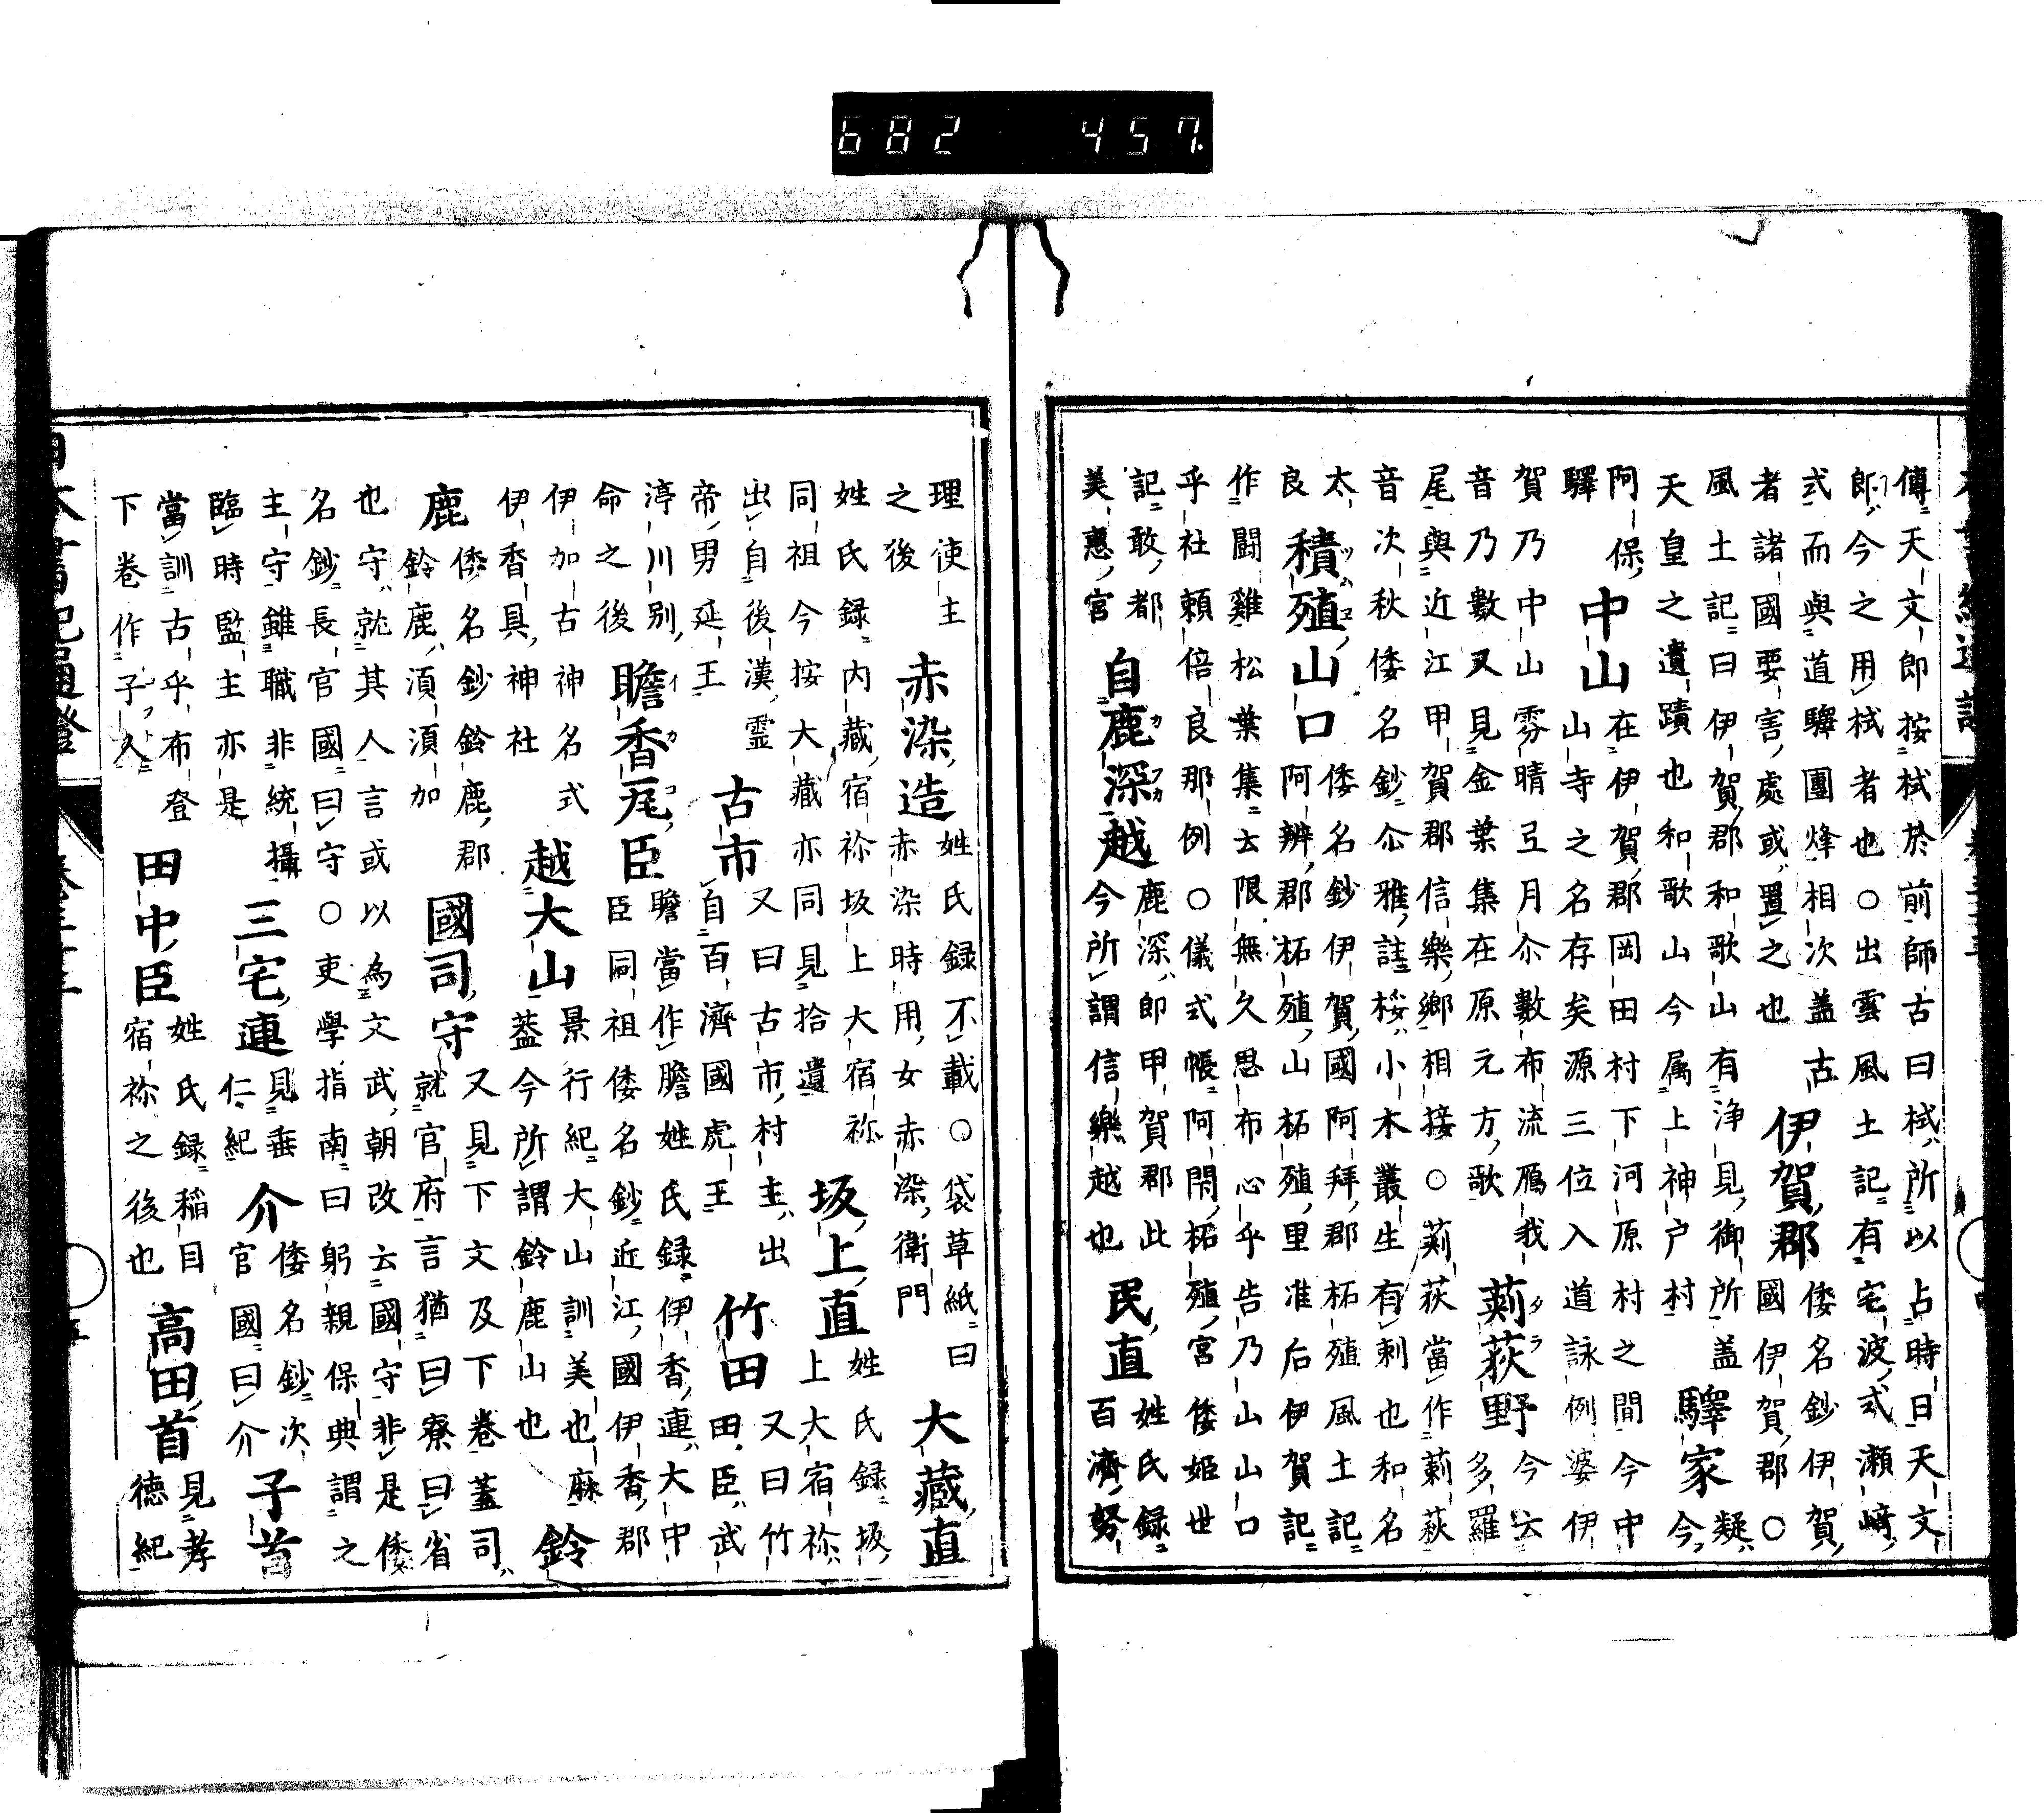 682 457.
傳天文即按栻於前師古曰栻所以占時日天文
郎今之用栻者也○出雲風土記有宅波式瀬﨑
式而與道驛團烽相次盖古
者諸國要害處或置之也 伊賀郡 倭名鈔伊賀
國伊賀郡○
風土記曰伊賀郡和歌山有浄見御所盖
天皇之遺蹟也和歌山今属上神戸村 驛家 疑
今
阿保
驛 中山 在伊賀郡岡田村下河原村之間今中
山寺之名存矣源三位入道詠例婆伊
賀乃中山雰晴弖月尒數布流鴈我
音乃數叉見金葉集在原元方歌 莿萩野 今云
多羅
尾與近江甲賀郡信樂郷相接○莿荻當作莿萩
音次秋倭名鈔尒雅註桵小木叢生有刺也和名
太
良 積殖山口 倭名鈔伊賀國阿拜郡柘殖風土記
阿辨郡柘殖山柘殖里准后伊賀記
作闘雞松葉集云限無久思布心乎告乃山山口
乎社頼倍良那例○儀式帳阿閇柘殖宮倭姫世
記敢都
美惠宮 自鹿深越 鹿深即甲賀郡此
今所謂信樂越也 民直 姓氏録
百濟努
理使主
之後 赤染造 姓氏録不載○袋草紙曰
赤染時用女赤染衛門 大藏直
姓氏録内藏宿祢坂上大宿祢
同祖今按大藏亦同見拾遺 坂上直 姓氏録坂
上大宿祢
出自後漢霊
帝男延王 古市 又曰古市村主出
自百濟國虎王 竹田 又曰竹
田臣武
渟川別
命之後 瞻香㞑臣 瞻當作膽姓氏録伊香連大中
臣同祖倭名鈔近江國伊香郡
伊加古神名式
伊香具神社 越大山 景行紀大山訓美也麻
蓋今所謂鈴鹿山也 鈴
鹿 倭名鈔鈴鹿郡
鈴鹿湏湏加 國司守 又見下文及下卷蓋司
就官府言猶曰寮曰省
也守就其人言或以為文武朝改云國守非是倭
名鈔長官國曰守○吏學指南曰躬親保典謂之
主守雖職非統攝
臨時監主亦是 三宅連 見垂
仁紀 介 倭名鈔次
官國曰介 子首
當訓古乎布登
下卷作子人 田中臣 姓氏録稲目
宿祢之後也 高田首 見孝
徳紀